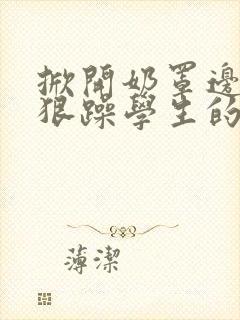 掀開奶罩邊
狠躁學生的
薄潔